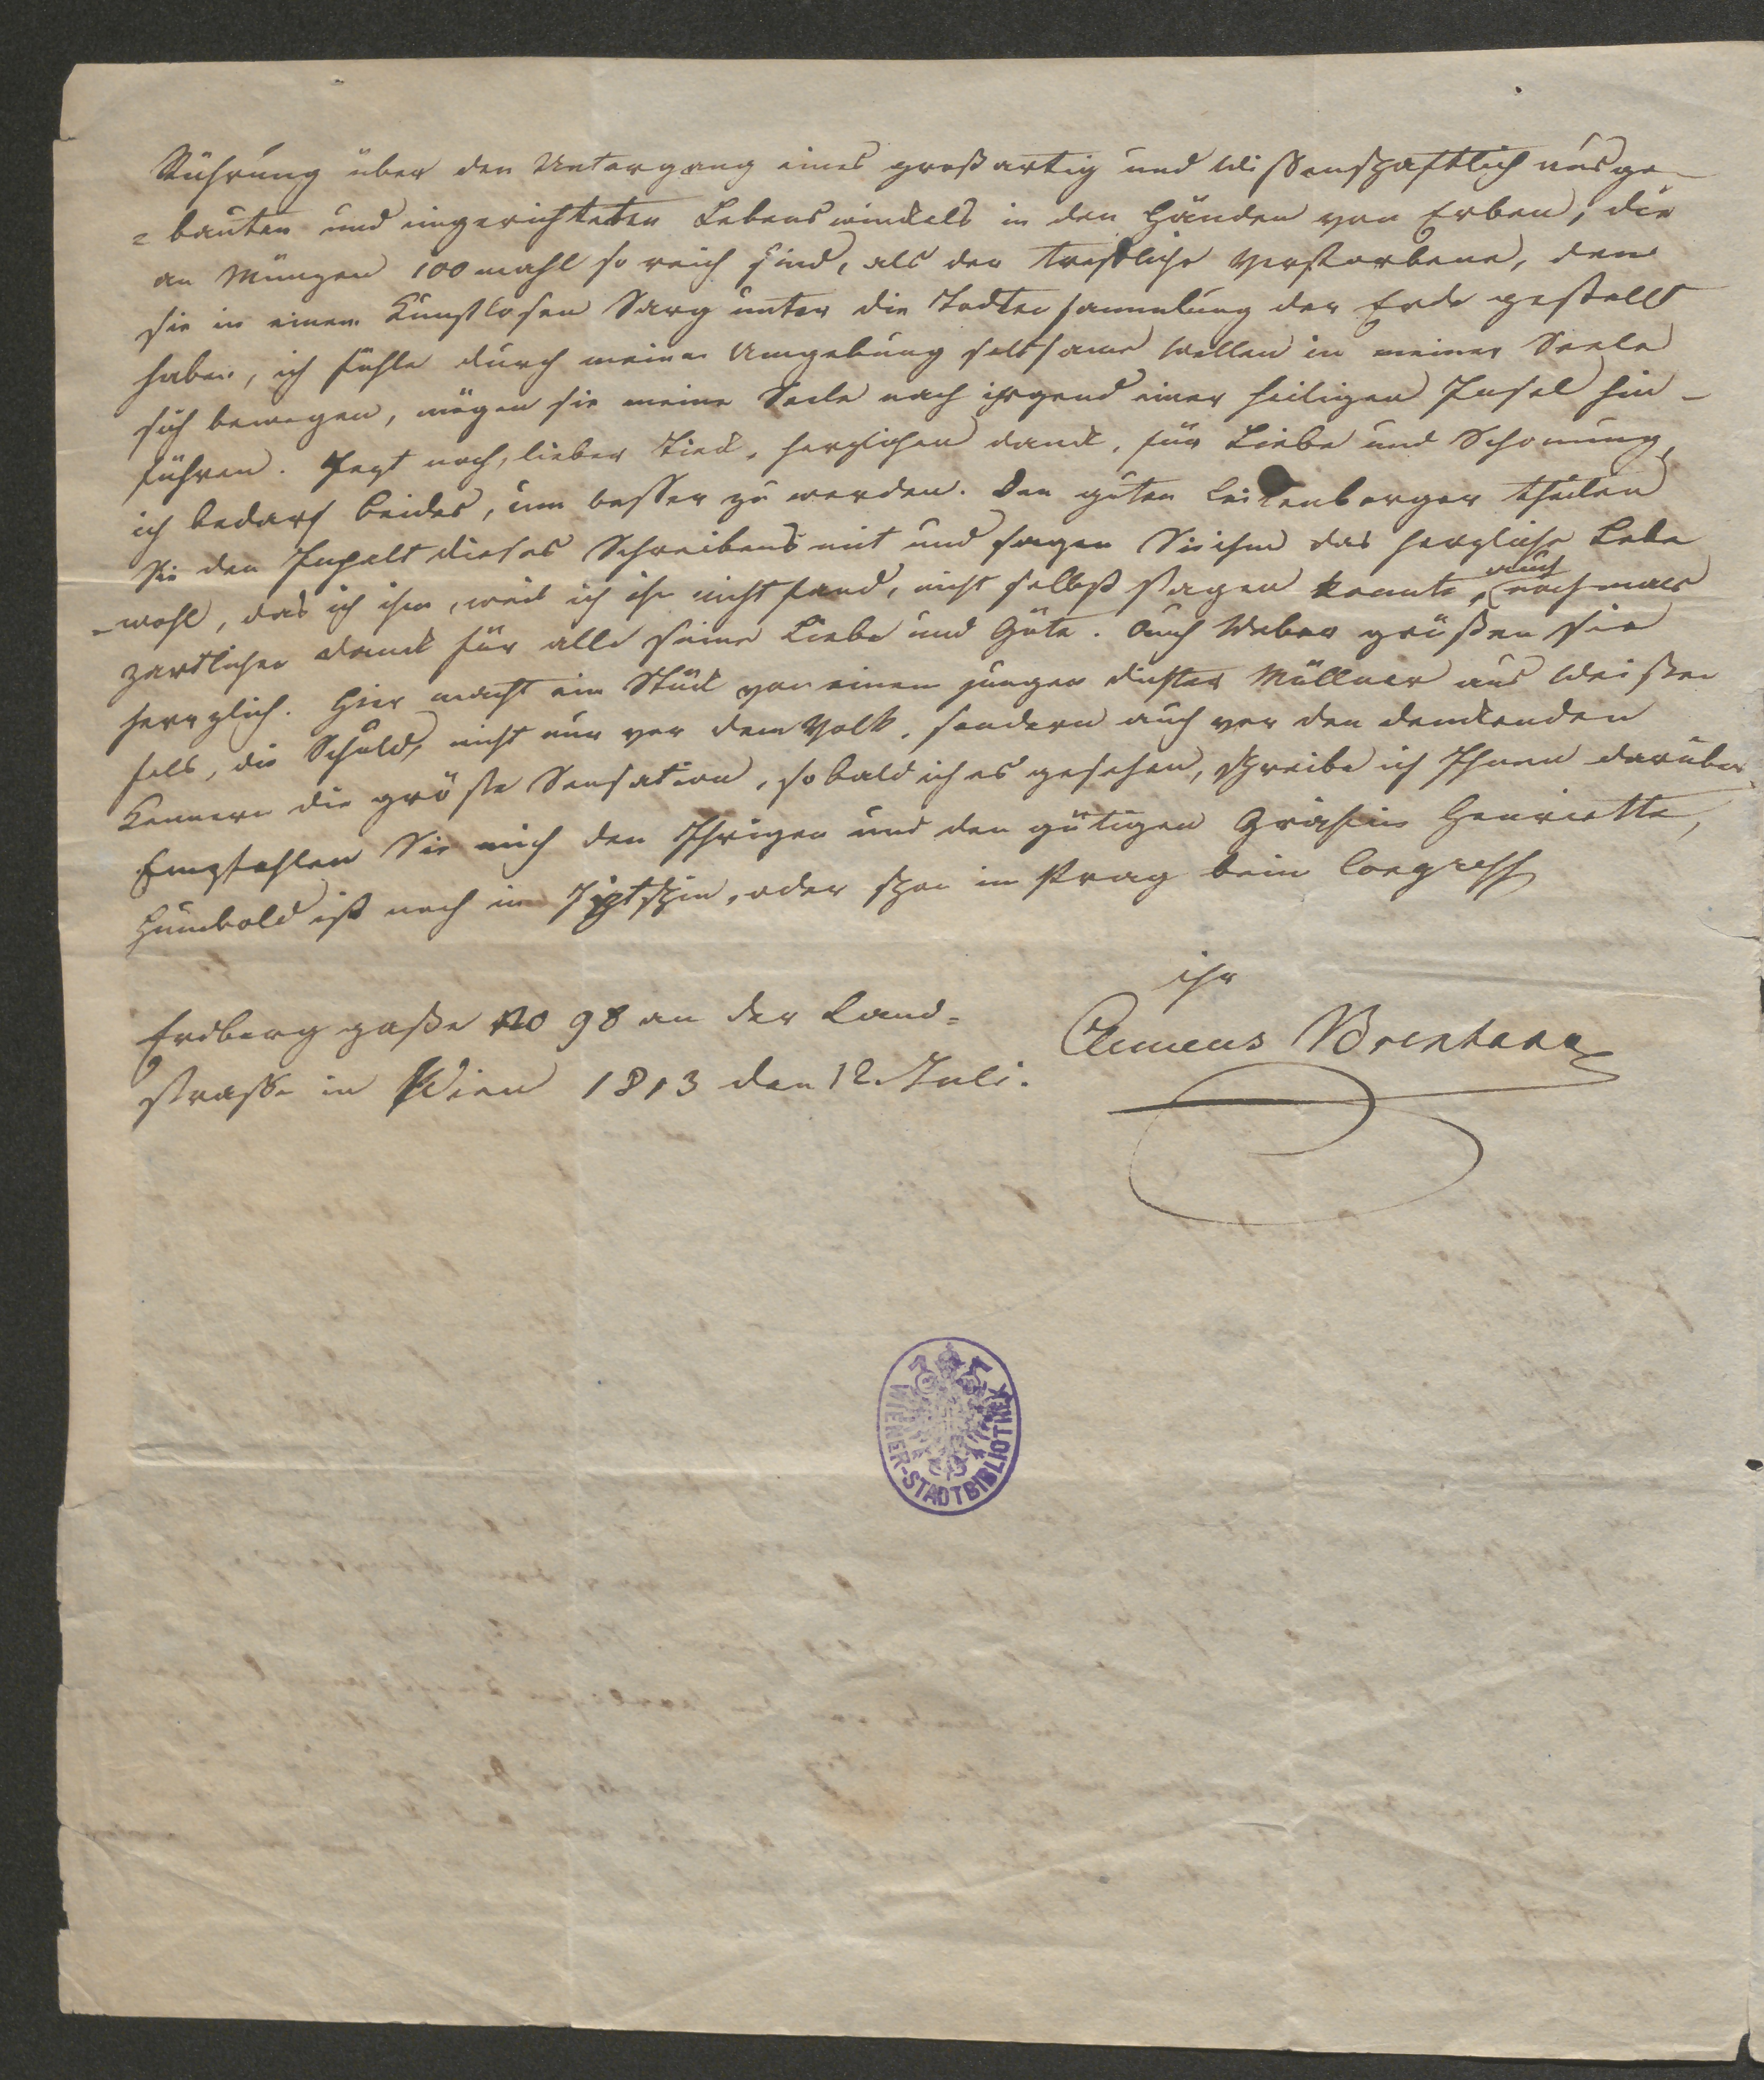 Rührung über den Untergang eines großartig und Wissenschaftlich ausge-
=bauten und eingerichteten Lebenswinckels in den Händen von Erben, die
an Münzen 100 mahl so reich sind, als der trefliche Verstorbene, den
sie in einem Kunstlosen Sarg unter die Todtensammlung der Erde gestellt
haben, ich fühle durch meine Umgebung seltsame Wellen in meiner Seele
sich bewegen, mögen sie meine Seele nach irgend einer heiligen Insel hin-
führen. Jezt noch, lieber Tieck, herzlichen danck, für Liebe und Schonung,
ich bedarf beides, um besser zu werden. Den guten Leitenberger theilen
Sie den Inhalt dieses Schreibens mit und sagen Sie ihm das herzliche Lebe
=wohl, das ich ihm, weil ich ihn nicht fand, nicht selbst sagen konnte, auch nochmals
zärtlichen danck für alle seine Liebe und Güte. Auch Weber grüßen sie
herzlich. Hier macht ein Stück von einem jungen dichter Müllner aus Weißen
fels, die Schuld, nicht nur vor dem Volk, sondern auch vor den denckenden
Kennern die größte Sensation, so bald ich es gesehen, schreibe ich Ihnen darüber
Empfehlen Sie mich den Ihrigen und der gütigen Gräfin Henriette,
Humbold ist noch in Jitschin, oder schon in Prag beim Congress
ihr
Clemens Brentano
Erdberg gaße No 98 an der Land=
strasse in Wien 1813 den 12 Juli.
WIENER-STADTBIBLIOTHEK